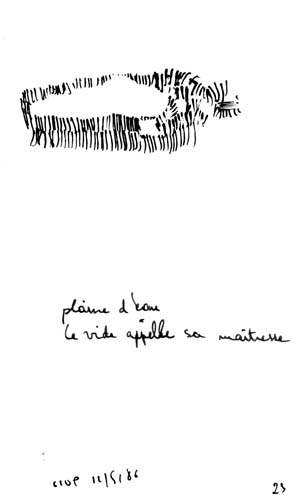 plaine d'eau
le vide appelle sa maîtresse
CIUP 11/5/86
23